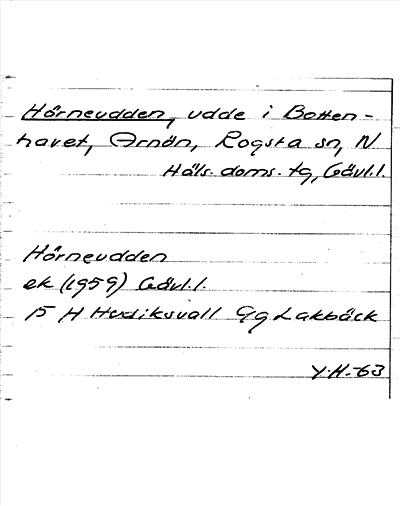 Hörneudden, udde i Botten-
havet, Arnön, Rogsta sn, N.
Häls. doms. tg, Gävl.l.
Hörneudden
ek (1959) Gävl.l.
15 H Hudiksvall Gg Lakbäck
Y.H.-63